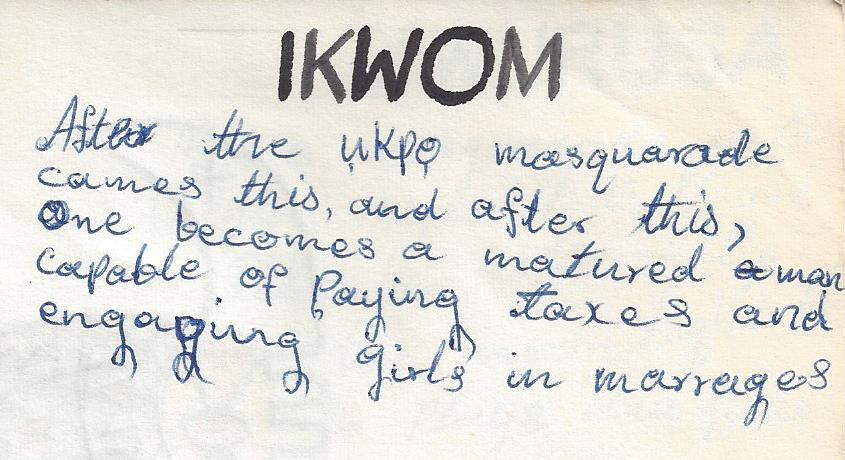 IKWOM
After the ụkpọ masquarade
cames this, and after this,
One becomes a matured a man
capable of Paying taxes and
engaging girls in marrages